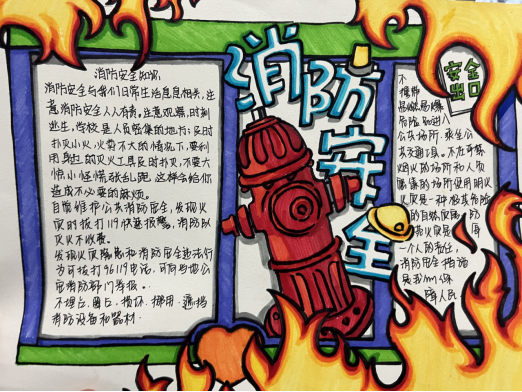 消防安全知识
消防安全与我们日常生活息息相关,注
意消防安全人人有责。注意观察,时刻
逃生,学校是人员密集的地方;及时
扑灭小火,火势不大的情况下,要利
用身边的灭火工具及时扑灭,不要大
惊小怪慌张乱跑,这样会给你
造成不必要的麻烦。
自觉维护公共消防安全,发现火
灾时拨打119快速报警,消防队
灭火不收费。
发现火灾隐患和消防安全违法行
为可拨打96119电话,可向当地公
安消防部门举报。
不埋占、圈占、损坏、挪用、遮挡
消防设备和器材.
消防安全
安全
出口
不
携带
易燃易爆
危险物进入
公共场所,乘坐公
共交通工具。不在严禁
烟火的场所和人员
密集的场所使用明火
火灾是一种极其危险
的自然灾害,防
御火灾是
一个人的责任,
消防安全措施
是我们保
障人民